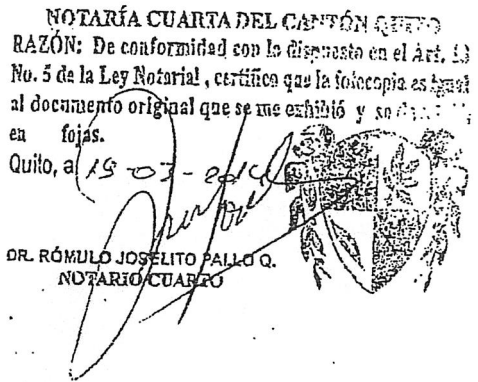 NOTARÍA CUARTA DEL CANTÓN QUITO
RAZÓN: De conformidad con lo dispuesto en el Art.
No. 5 de la Ley Notarial, certifico que la fotocopia es igual
al documento original que se me exhibió y se
en fojas.
Quito, a 19-03-
DR. RÓMULO JOSELITO PALLO Q.
NOTARIO CUARTO